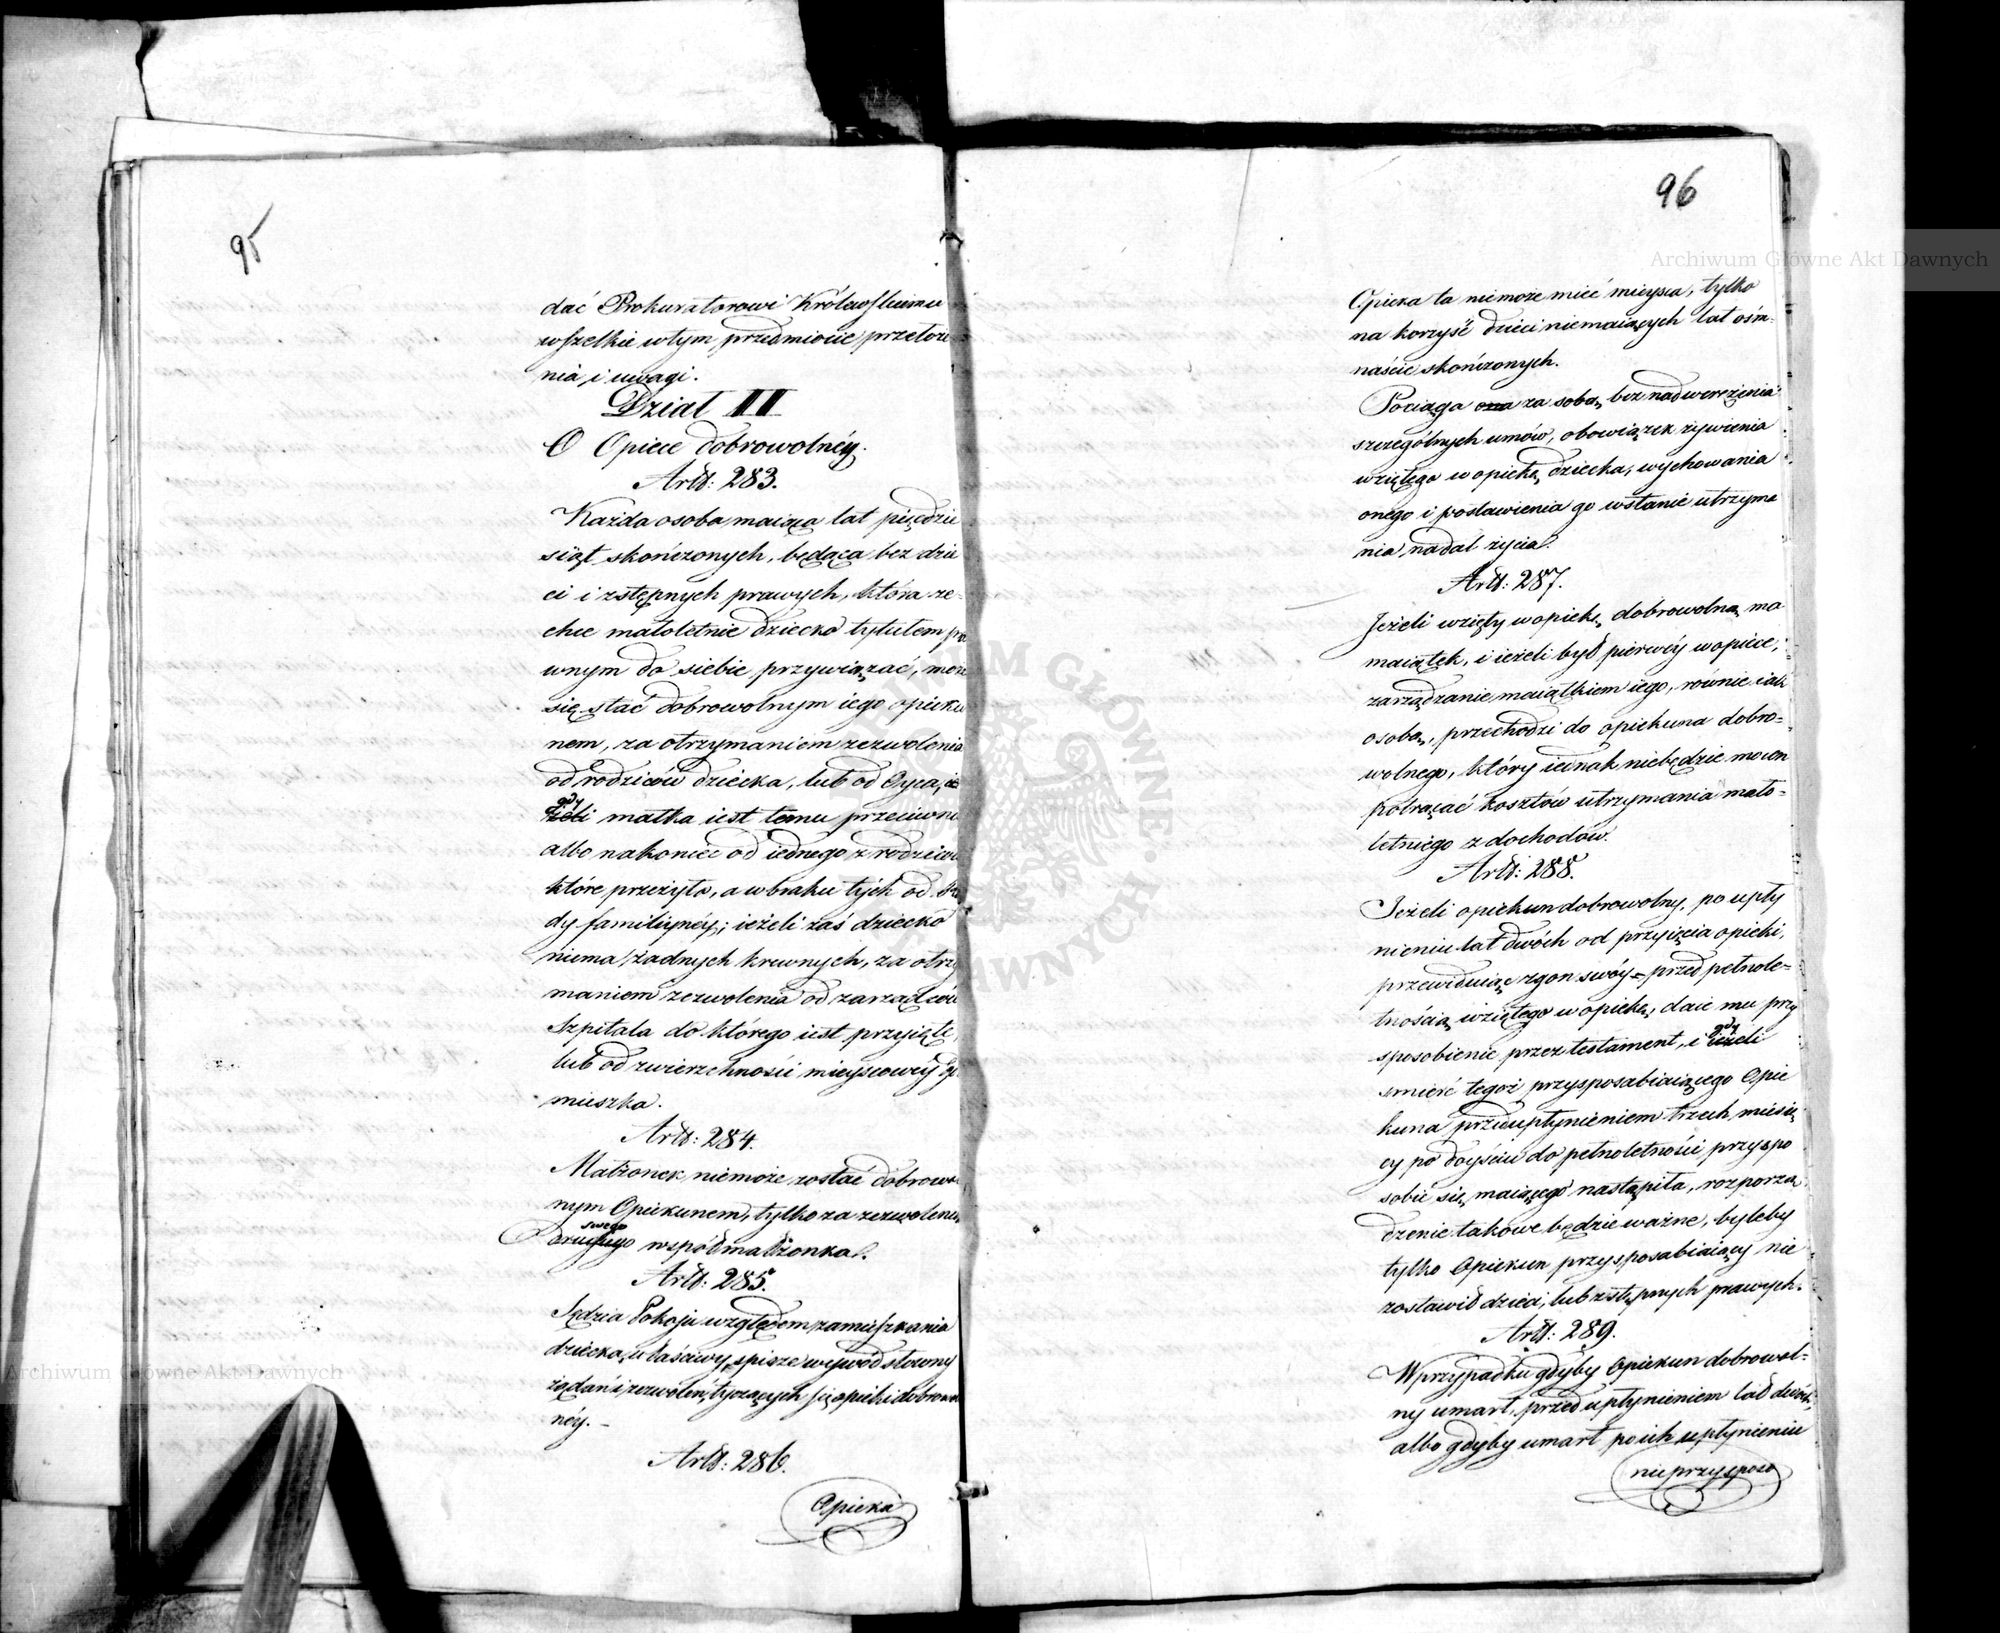 95
dać Prokuratorowi Królewskiemu
wszelkie w tym przedmiocie przełoże
nia i uwagi.
Dział III
O Opiece dobrowolnéy.
Artł: 283.
Każda osoba maiąca lat pięćdzie
siąt skończonych, będąca bez dzie
ci i zstępnych prawych, która ze-
chce małoletnie dziecko tytułem pra
wnym do siebie przywiązać, może
się stać dobrowolnym iego opieku
nem, za otrzymaniem zezwolenia
od rodziców dziecka, lub od Oyca, ie
gdy
żeli matka iest temu przeciwna
albo nakoniec od iednego z rodziców
które przeżyło, a w braku tych od Ra
dy familiynéy; ieżeli zaś dziecko
niema żadnych krewnych, za otrzy
maniem zezwolenia od zarządców
Szpitala do którego iest przyięte,
lub od zwierzchności mieyscowéy gdzie
mieszka.
Artł: 284.
Małżonek niemoże zostać dobrowol
nym Opiekunem, tylko za zezwoleniem
swego
drugiego współmałżonka.
Artł: 285.
Sędzia Pokoju względem zamieszkania
dziecka, właściwy, spisze wywód słowny
żądań i zezwoleń, tyczących się opieki dobrowol
néy. -
Artł: 286.
Opieka
96
Archiwum Główne Akt Dawnych
Opieka ta niemoże mieć mieysca, tylko
na korzyść dzieci niemaiących lat ośm-
naście skończonych.
Pociąga ona za sobą, bez nadwerężenia
szczególnych umów, obowiązek żywienia
wziętego w opiekę dziecka, wychowania
onego i postawienia go w stanie utrzyma
nia nadal życia.
Artł: 287.
Jeżeli wzięty w opiekę dobrowolną ma
maiątek, i ieżeli był pierwéy w opiece,
zarządzanie maiątkiem iego, równie iak
osobą, przechodzi do opiekuna dobro-
wolnego, który iednak niebędzie mocen
potrącać kosztów utrzymania mało-
letniego z dochodów.
Artł: 288.
Jeżeli opiekun dobrowolny, po upły
nieniu lat dwóch od przyięcia opieki,
przewiduiąc zgon swóy przed pełnole-
tnością wziętego w opiekę, daie mu przy
gdy
sposobienie przez testament, i ieżeli
śmierć tegoż przysposabiaiącego Opie
kuna przed upłynieniem trzech miesię
cy po doyściu do pełnoletności przyspo
sobić się maiącego nastąpiła, rozporzą
dzenie takowe będzie ważne, byleby
tylko Opiekun przysposabiaiący nie
zostawił dzieci, lub zstępnych prawych.
Artł: 289.
W przypadku gdyby Opiekun dobrowol-
ny umarł, przed upłynieniem lat dwóch,
albo gdyby umarł po ich upłynieniu
nie przysposo
Archiwum Główne Akt Dawnych